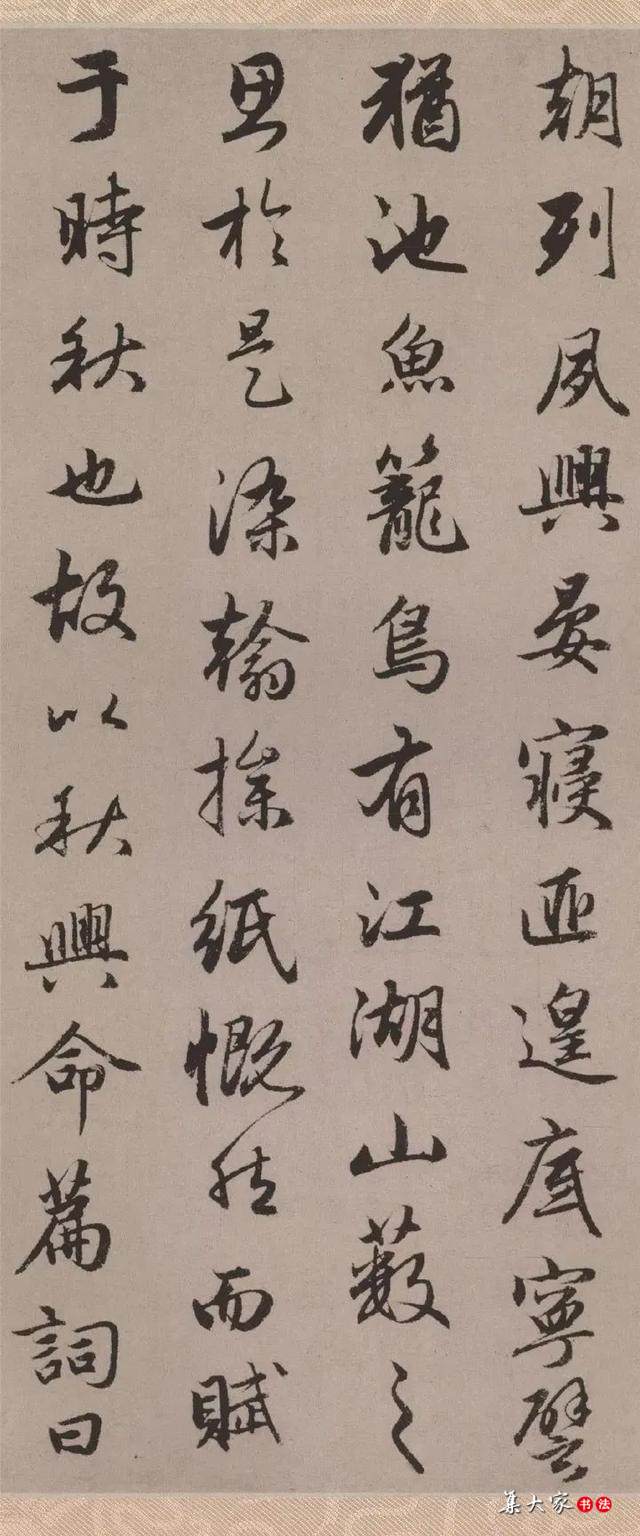 朝列夙興晏寢匪遑底寧譬
猶池魚籠鳥有江湖山藪之
思於是染翰操紙慨然而賦
于時秋也故以秋興命篇詞曰
集大家书法